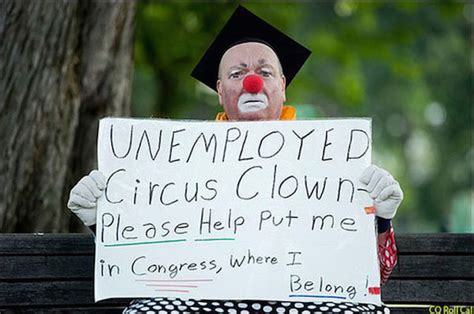 UNEMPLOYED
Circus Clown-
Please Help Put me
in Congress, Where I
Belong!
CQ Roll Call